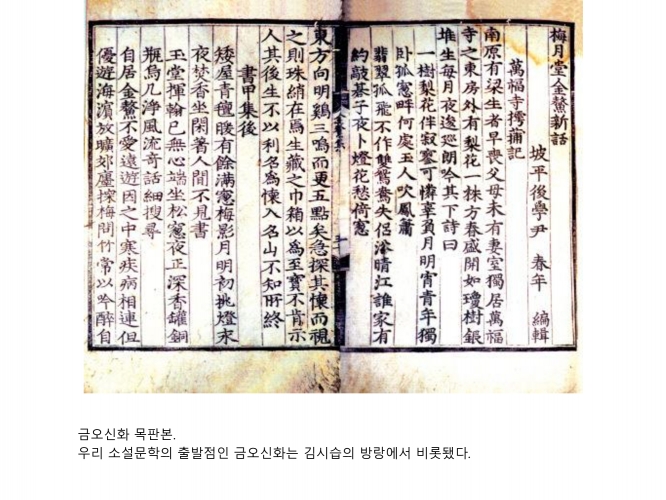 梅月堂金鰲新話
坡平後學尹 春年 編輯
萬福寺摴蒱記
南原有梁生者早喪父母未有妻室獨居萬福
寺之東房外有梨花一株方春盛開如瓊樹銀
堆生每月夜逡巡朗吟其下詩曰
一樹梨花伴寂寥可憐辜負月明宵青年獨
臥孤窓畔何處玉人吹鳳簫
翡翠孤飛不作雙鴛鴦失侶浴晴江誰家有
約敲碁子夜卜燈花愁倚窓
東方向明鷄三鳴而更五點矣急探其懷而視
之則珠綃在焉生藏之巾箱以爲至寶不肯示
人其後生不以利名爲懷入名山不知所終
書甲集後
矮屋青氊暖有餘滿窓梅影月明初挑燈永
夜焚香坐閑著人間不見書
玉堂揮翰已無心端坐松窓夜正深香罐銅
瓶烏几淨風流奇話細搜尋
自居金鰲不愛遠遊因之中寒疾病相連但
優遊海濱放曠郊廛探梅問竹常以吟醉自
금오신화 목판본.
우리 소설문학의 출발점인 금오신화는 김시습의 방랑에서 비롯됐다.